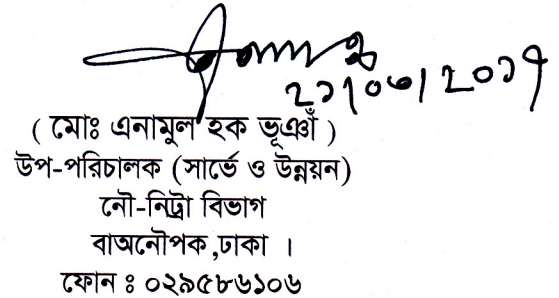 ২১/০৩/২০১৭
( মোঃ এনামুল হক ভূঞাঁ )
উপ-পরিচালক (সার্ভে ও উন্নয়ন)
নৌ-নিট্রা বিভাগ
বাঅনৌপক,ঢাকা ।
ফোন ঃ ০২৯৫৮৬১০৬